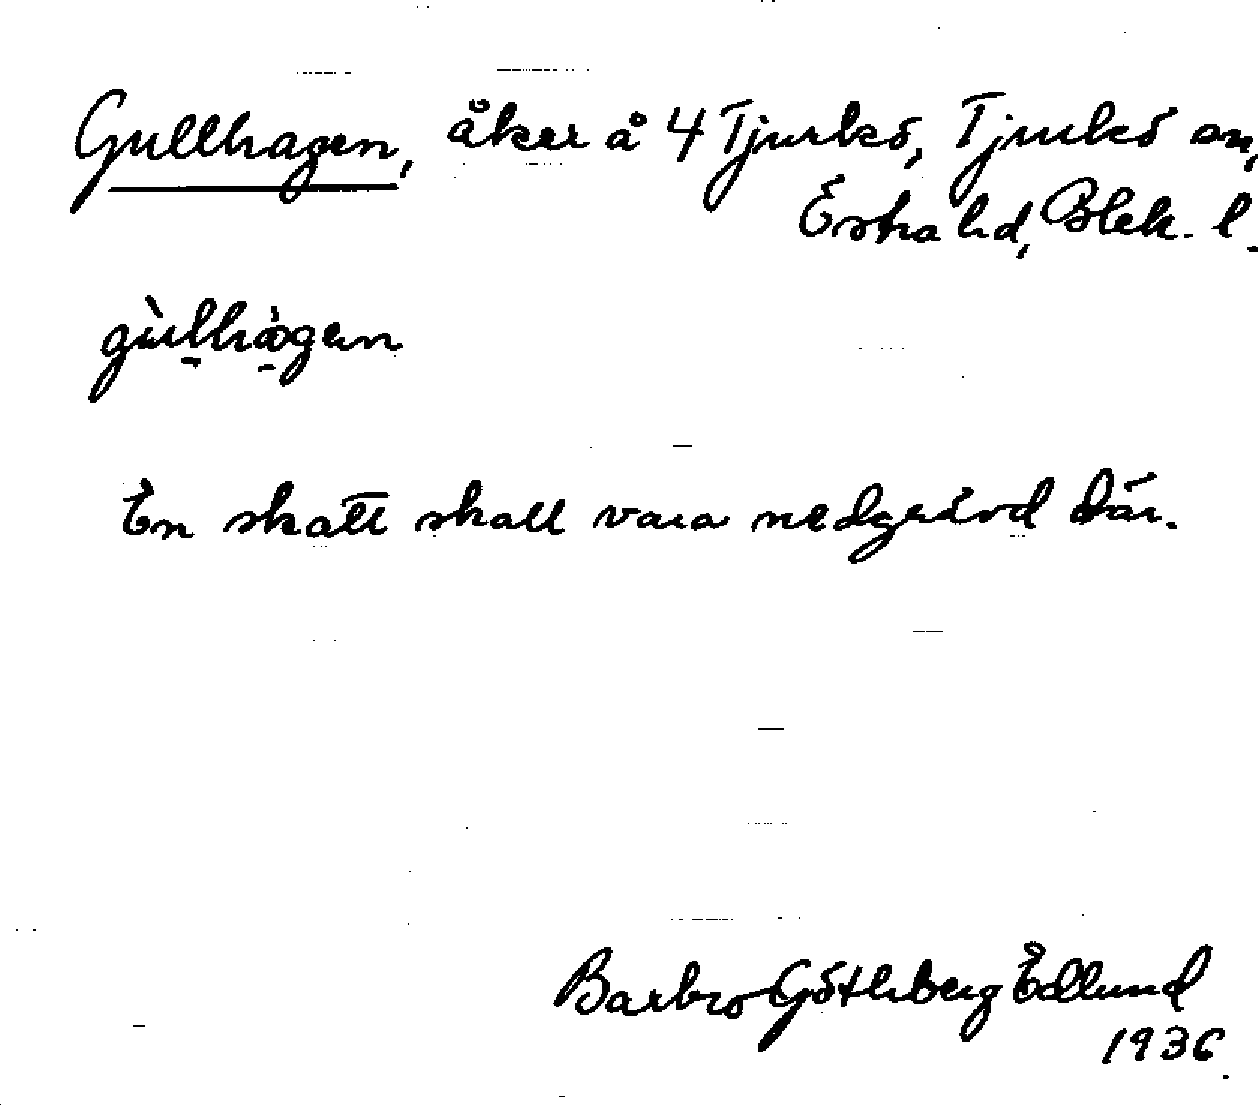 Gullhagen, åker å 4 Tjurkö, Tjurkö sn,
Östra hd, Blek. l.
gùlhàgen
En skatt skall vara nedgrävd där.
Barbro Göthberg Edlund
1936